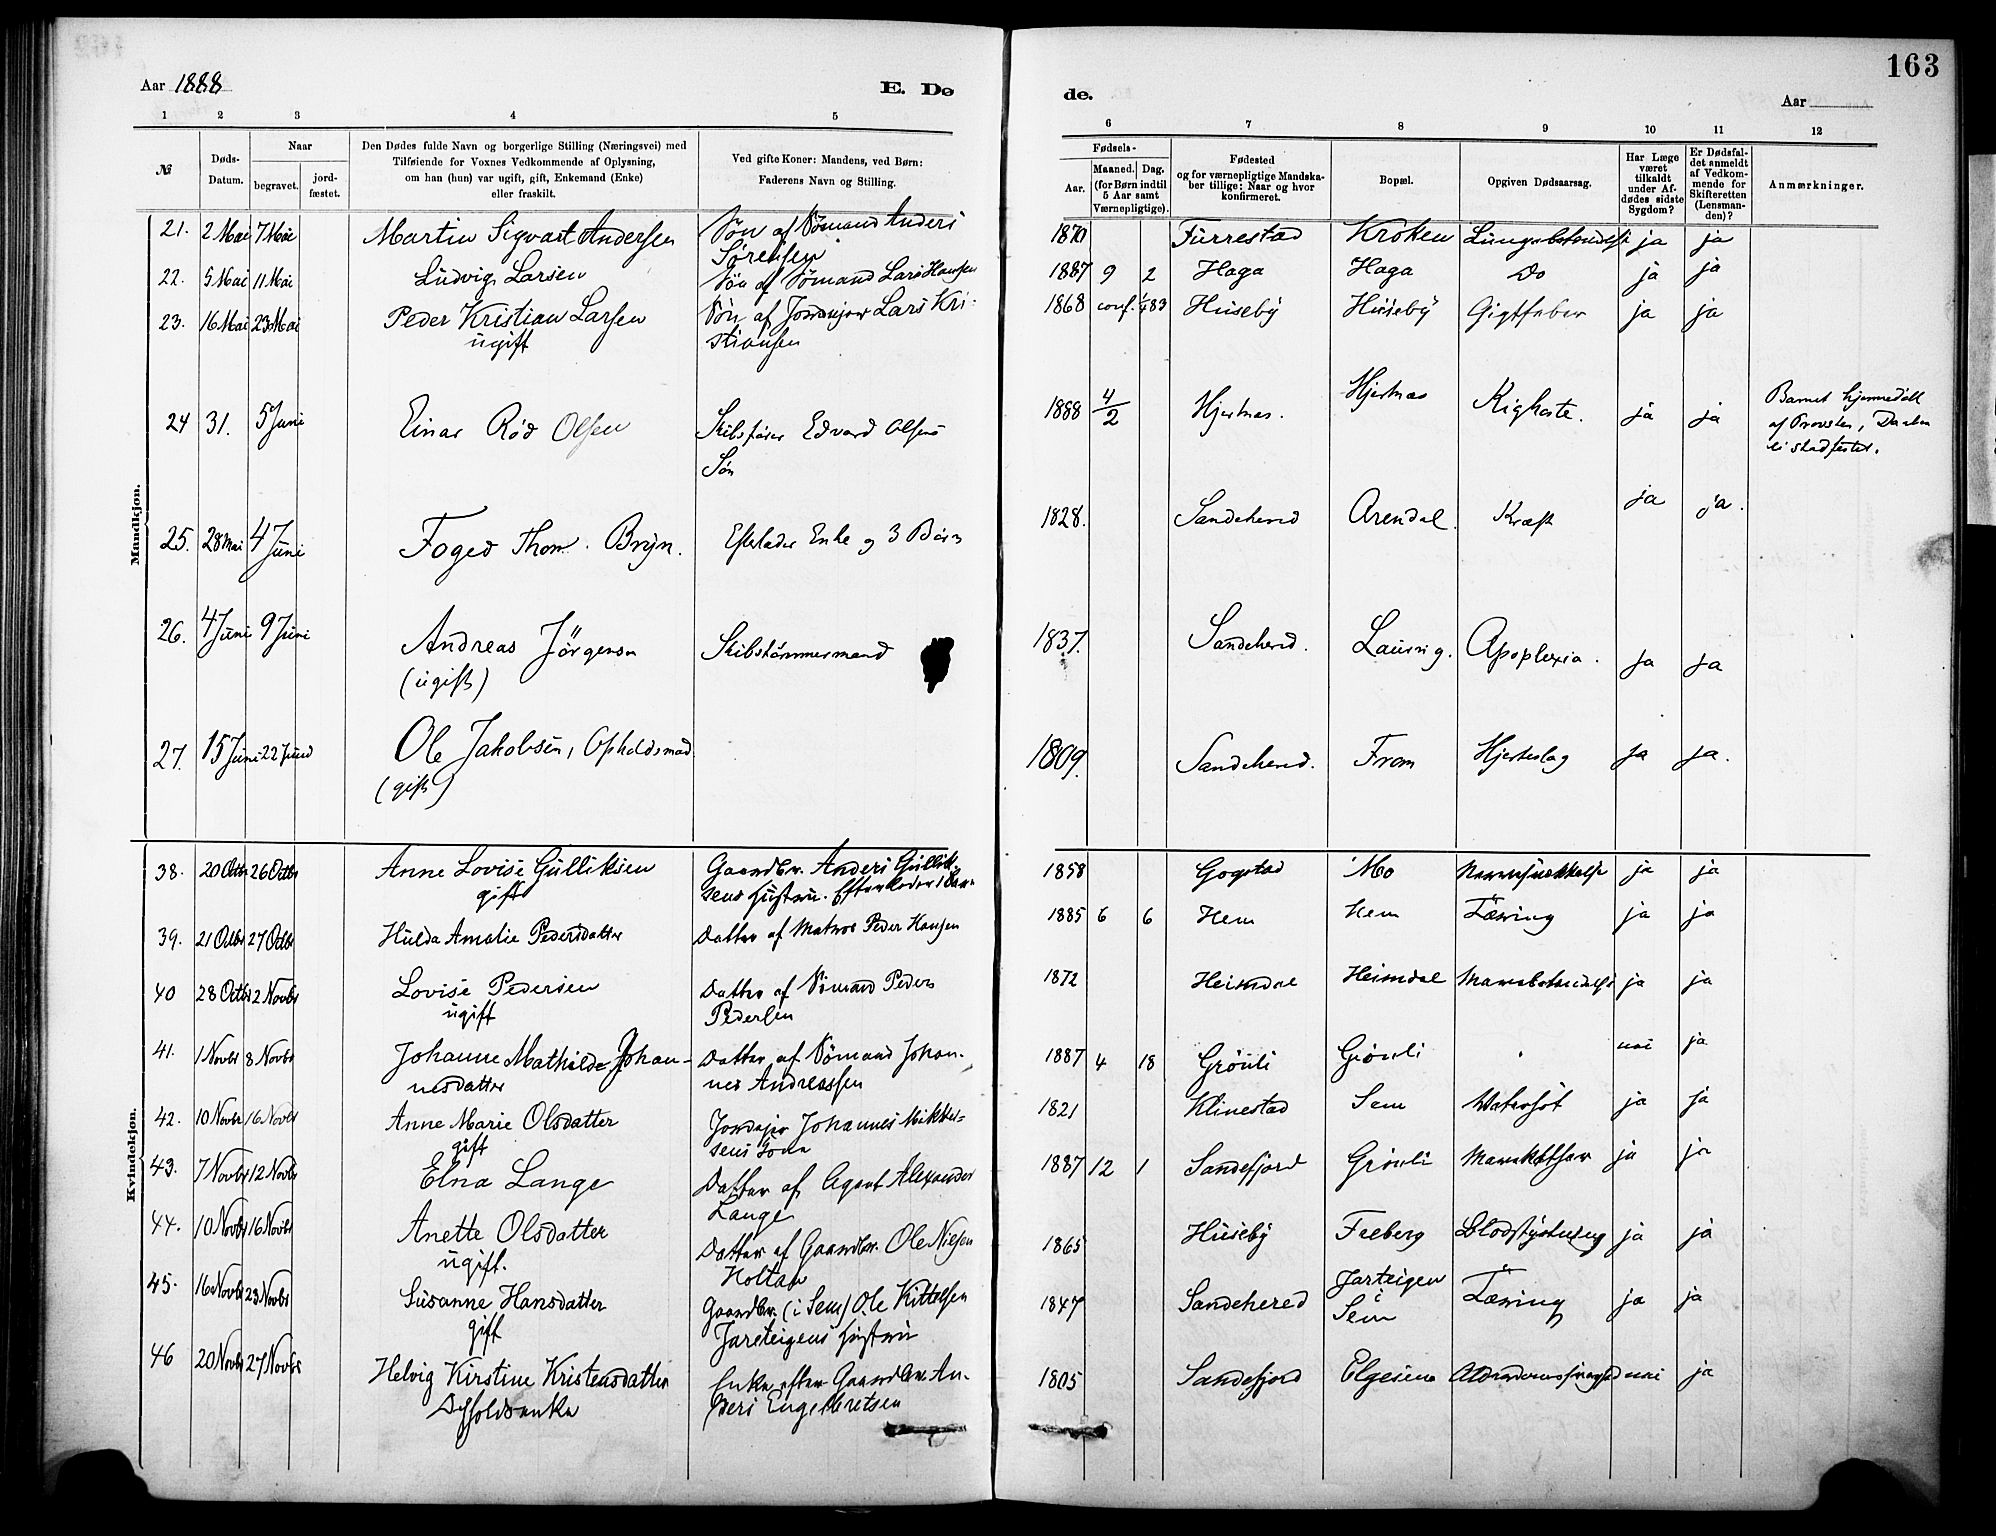 163
Aar 1888
E. Dø
de.
Aar
1 2 3 4 5
6 7 8 9 10 11 12
№
Døds-
Datum.
Naar
begravet.
jord-
fæstet.
Den Dødes fulde Navn og borgerlige Stilling (Næringsvei) med
Tilføiende for Voxnes Vedkommende af Oplysning,
om han (hun) var ugift, gift, Enkemand (Enke)
eller fraskilt.
Ved gifte Koner: Mandens, ved Børn:
Faderens Navn og Stilling.
Fødsels-
Aar.
Maaned. Dag.
(for Børn indtil
5 Aar samt
Værnepligtige).
Fødested
og for værnepligtige Mandska-
ber tillige: Naar og hvor
konfirmeret.
Bopæl.
Opgiven Dødsaarsag.
Har Læge
været
tilkaldt
under Af-
dødes sidste
Sygdom?
Er Dødsfal-
det anmeldt
af Vedkom-
mende for
Skifteretten
(Lensman-
den)?
Anmærkninger.
Mandkjøn.
21. 2 Mai 7 Mai Martin Sigvart Andersen Søn af Sømand Anders 1870 Furrestad Kroken Lungebetendelse ja ja
Sørensen
22. 5 Mai 11 Mai Ludvig Larsen Søn af Sømand Lars Hansen 1887 9 2 Haga Haga Do ja ja
23. 16 Mai 23 Mai Peder Kristian Larsen Søn af Jordejer Lars Kri- 1868 conf. 1/4 83 Huseby Huseby Gigtfeber ja ja
ugift stiansen
24 31. 5 Juni Einar Rød Olsen Skibsfører Edvard Olsens 1888 4/2 Hjertnas. Hjertnas Kighoste. ja ja Barnet hjemmedøbt
Søn af Provsten, Daaben
ei stadfestet.
25. 28 Mai 4 Juni Foged Thom. Bryn. Efterlader Enke og 3 Børn 1828. Sandeherred Arendal. Kræft ja ja.
26. 4 Juni 9 Juni Andreas Jörgensen Skibstømmermand 1837. Sandeherred. Lauvig. Apoplexia. ja ja
(ugift)
27. 15 Juni 22 Juni Ole Jakobsen, Opholdsmand 1809. Sandeherred. From Hjerteslag ja ja.
(gift)
Kvindekjøn.
38. 20 Octbr 26 Octbr Anne Lovise Gulliksen Gaardbr. Anders Gullik- 1858 Gogstad Mo ja ja
gift sens Hustru. Efterlader 1 Barn
39. 21 Octbr 27 Octbr Hulda Amalie Pedersdatter Datter af Matros Peder Hansen 1885 6 6 Hem Hem Tæring ja ja
40 28 Octbr 2 Novbr Lovise Pedersen Datter af Sømand Peder 1872 Heimdal Heimdal ja ja
ugift Pedersen
41. 1 Novbr 8 Novbr Johanne Mathilde Johan- Datter af Sømand Johan- 1887 4 18 Grönli Grönli nei ja
nesdatter nes Andreassen
42. 10 Novbr 16 Novbr Anne Marie Olsdatter Jordejer Johannes Mikkel- 1821 Klinestad Sem Watersot ja ja
gift sens Kone
43. 7 Novbr 12 Novbr Elna Lange Datter af Agent Alexander 1887 12 1 Sandefjord Grönli ja ja
Lange
44. 10 Novbr 16 Novbr Anette Olsdatter Datter af Gaardbr. Ole Nielsen 1865 Huseby Freberg Blodstyrtning ja ja
ugift. Holtan
45. 16 Novbr 23 Novbr Susanne Hansdatter Gaardbr. (i Sem) Ole Kittelsen 1847 Sandehered Jarteigen Tæring ja ja
gift Jarteigens Hustru i
Sem
46 20 Novbr 27 Novbr Helvig Kirstine Kristensdatter Enke efter Gaardbr. An- 1805 Sandefjord Elgesem Alderdomssvaghed nei ja
Opholdsenke ders Engebretsen